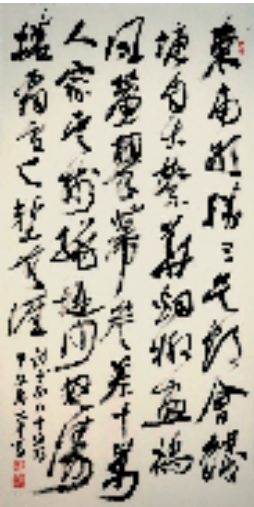 東南形勝三吳都會錢
塘自古繁華烟柳畫橋
風簾翠幕參差十萬
人家雲樹繞堤沙怒濤
捲霜雪天塹無涯